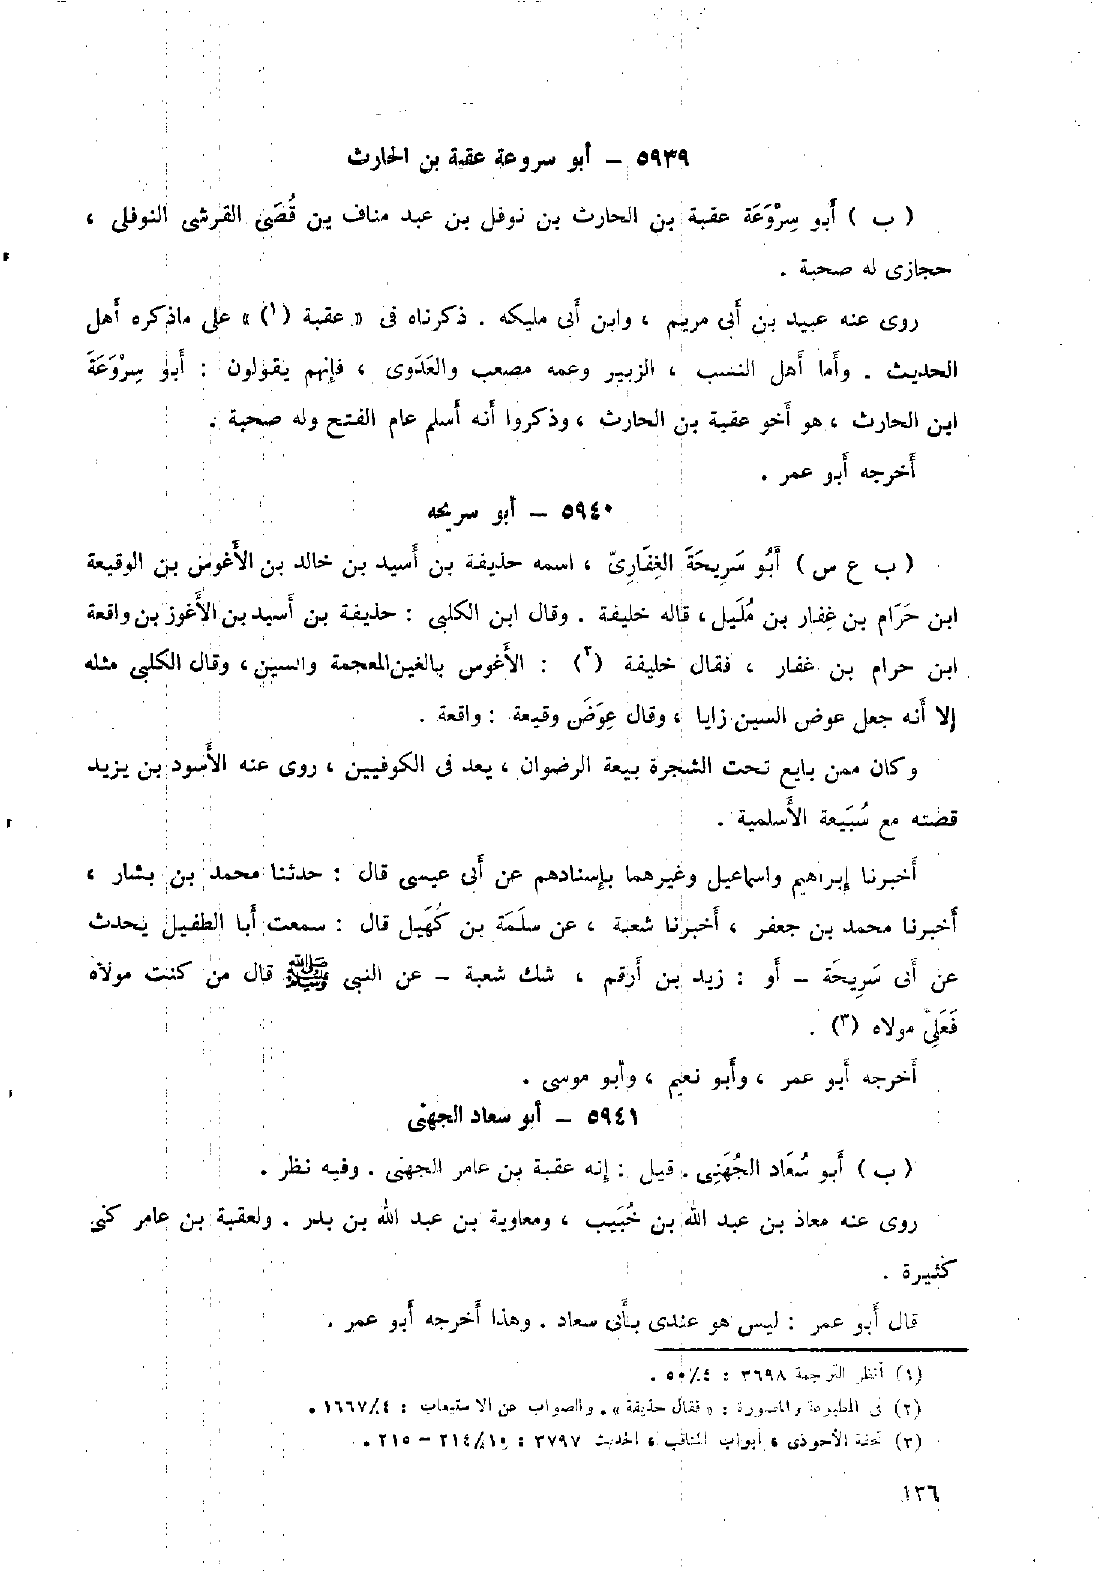 ٥٩٣٩ – أبو سروعة عقبة بن الحارث
( ب ) أَبو سِرْوَعَة عقبة بن الحارث بن نوفل بن عبد مناف بن قُصَى القرشى النوفلى ،
حجازى له صحبة .
روى عنه عبيد بن أَبى مريم ، وابن أَبى مليكه . ذكرناه فى « عقبة (١) » على ماذكره أَهل
الحديث . وأَما أَهل النسب ، الزبير وعمه مصعب والعَدَوى ، فإنهم يقولون : أَبو سِرْوَعَةَ
ابن الحارث ، هو أَخو عقبة بن الحارث ، وذكروا أَنه أَسلم عام الفتح وله صحبة .
أَخرجه أَبو عمر .
٥٩٤٠ – أبو سريحه
( ب ع س ) أَبُو سَرِيحَةَ الغِفَارِىّ ، اسمه حذيفة بن أَسيد بن خالد بن الأَغوس بن الوقيعة
ابن حَرَام بن غِفار بن مُلَيل ، قاله خليفة . وقال ابن الكلبى : حذيفة بن أَسيد بن الأَغوز بن واقعة
ابن حرام بن غفار ، فقال خليفة (٢) : الأَغوس بالغين المعجمة والسين ، وقال الكلبى مثله
إلا أَنه جعل عوض السين زايا ، وقال عِوَضَ وقيعة : واقعة .
وكان ممن بايع تحت الشجرة بيعة الرضوان ، يعد فى الكوفيين ، روى عنه الأَسود بن يزيد
قصته مع سُبَيعة الأَسلمية .
أَخبرنا إبراهيم واسماعيل وغيرهما بإسنادهم عن أَبى عيسى قال : حدثنا محمد بن بشار ،
أَخبرنا محمد بن جعفر ، أَخبرنا شعبة ، عن سلَمَة بن كُهَيل قال : سمعت أَبا الطفيل يحدث
عن أَبى سَرِيحَة – أَو : زيد بن أَرقم ، شك شعبة – عن النبى ﷺ قال من كنت مولاه
فَعَلِىّ مولاه (٣) .
أَخرجه أَبو عمر ، وأَبو نعيم ، وأبو موسى .
٥٩٤١ – أبو سعاد الجهنى
( ب ) أَبو سُعَاد الجُهَنِى . قيل : إنه عقبة بن عامر الجهنى . وفيه نظر .
روى عنه معاذ بن عبد الله بن خُبَيب ، ومعاوية بن عبد الله بن بدر . ولعقبة بن عامر كنى
كثيرة .
قال أَبو عمر : ليس هو عندى بأَبى سعاد . وهذا أَخرجه أَبو عمر .
(١) أنظر الترجمة ٣٦٩٨ : ٥٠/٤ .
(٢) فى المطبوعة والمصورة : « فقال حذيفة » . والصواب عن الاستيعاب : ١٦٦٧/٤ .
(٣) تحفة الأحوذى ، أبواب المناقب ، الحديث ٣٧٩٧ : ٢١٤/١٠ – ٢١٥ .
١٣٦